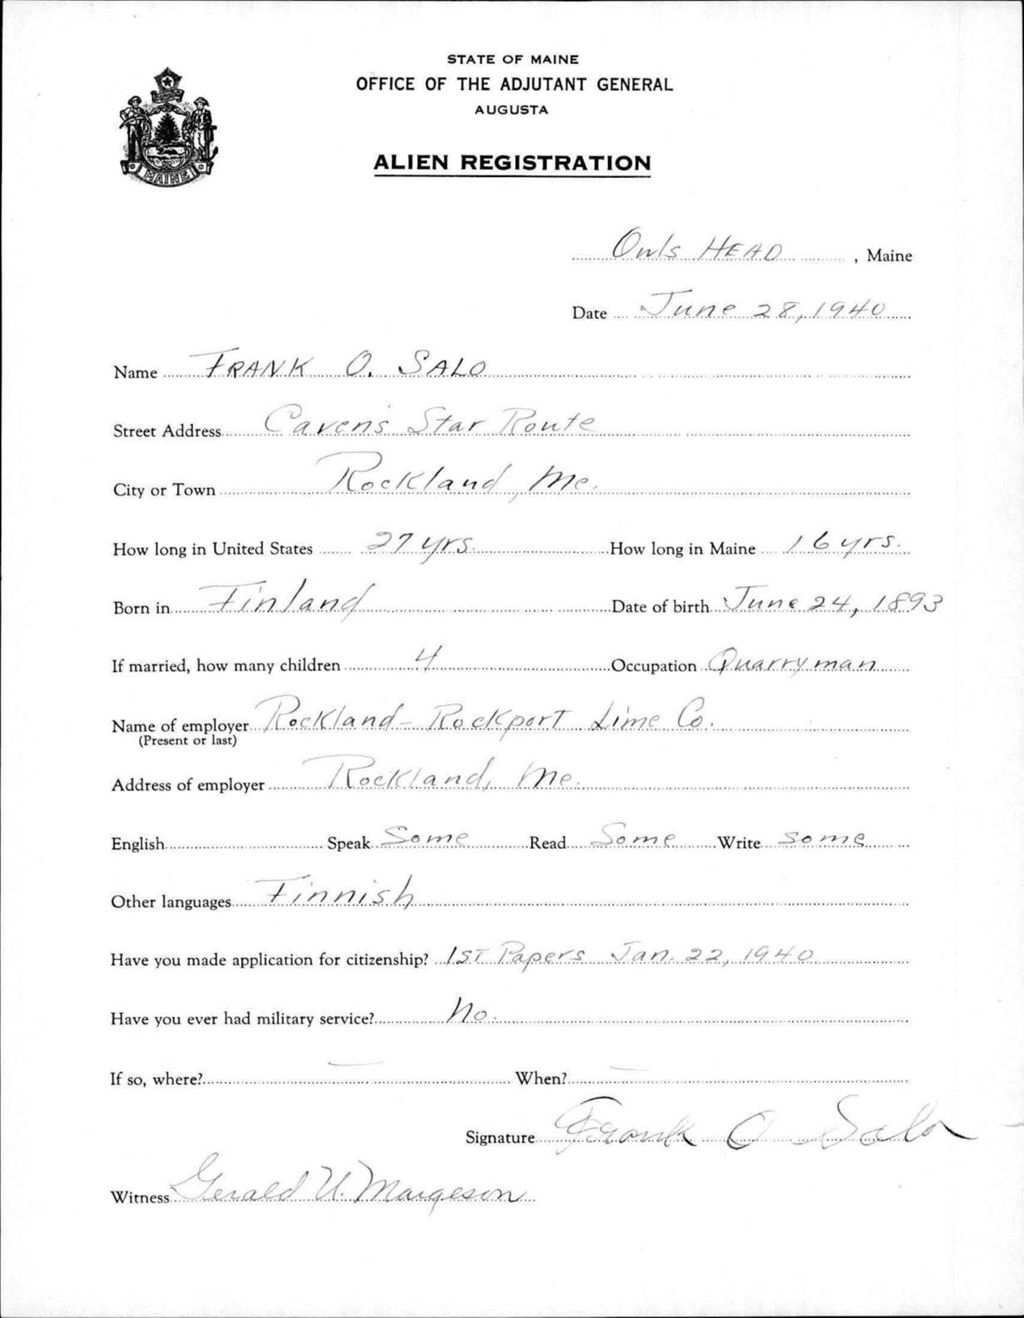 STATE OF MAINE
OFFICE OF THE ADJUTANT GENERAL
AUGUSTA
ALIEN REGISTRATION
MAINE
Owls HEAD, Maine
Date June 28, 1940
Name FRANK O. SALO
Street Address Caven's Star Route
City or Town Rockland, Me.
How long in United States 27 yrs. How long in Maine 16 yrs.
Born in Finland Date of birth June 24, 1893
If married, how many children 4 Occupation Quarryman
Name of employer Rockland-Rockport Lime Co.
(Present or last)
Address of employer Rockland, Me.
English Speak Some Read Some Write some
Other languages Finnish
Have you made application for citizenship? 1ST Papers Jan. 22, 1940
Have you ever had military service? No.
If so, where? — When? —
Signature Frank O Salo
Witness Gerald U. Margeson